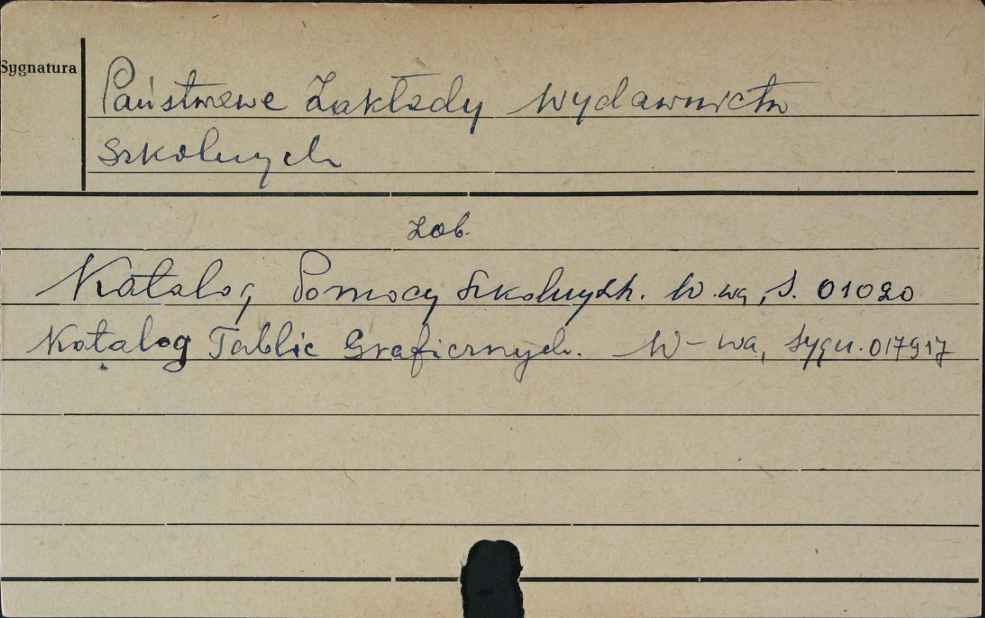 Sygnatura
Państwowe Zakłady Wydawnictw
Szkolnych
zob.
Katalog Pomocy Szkolnych. W.wa, S. 01020
Katalog Tablic Graficznych. W-wa, Sygn. 017917